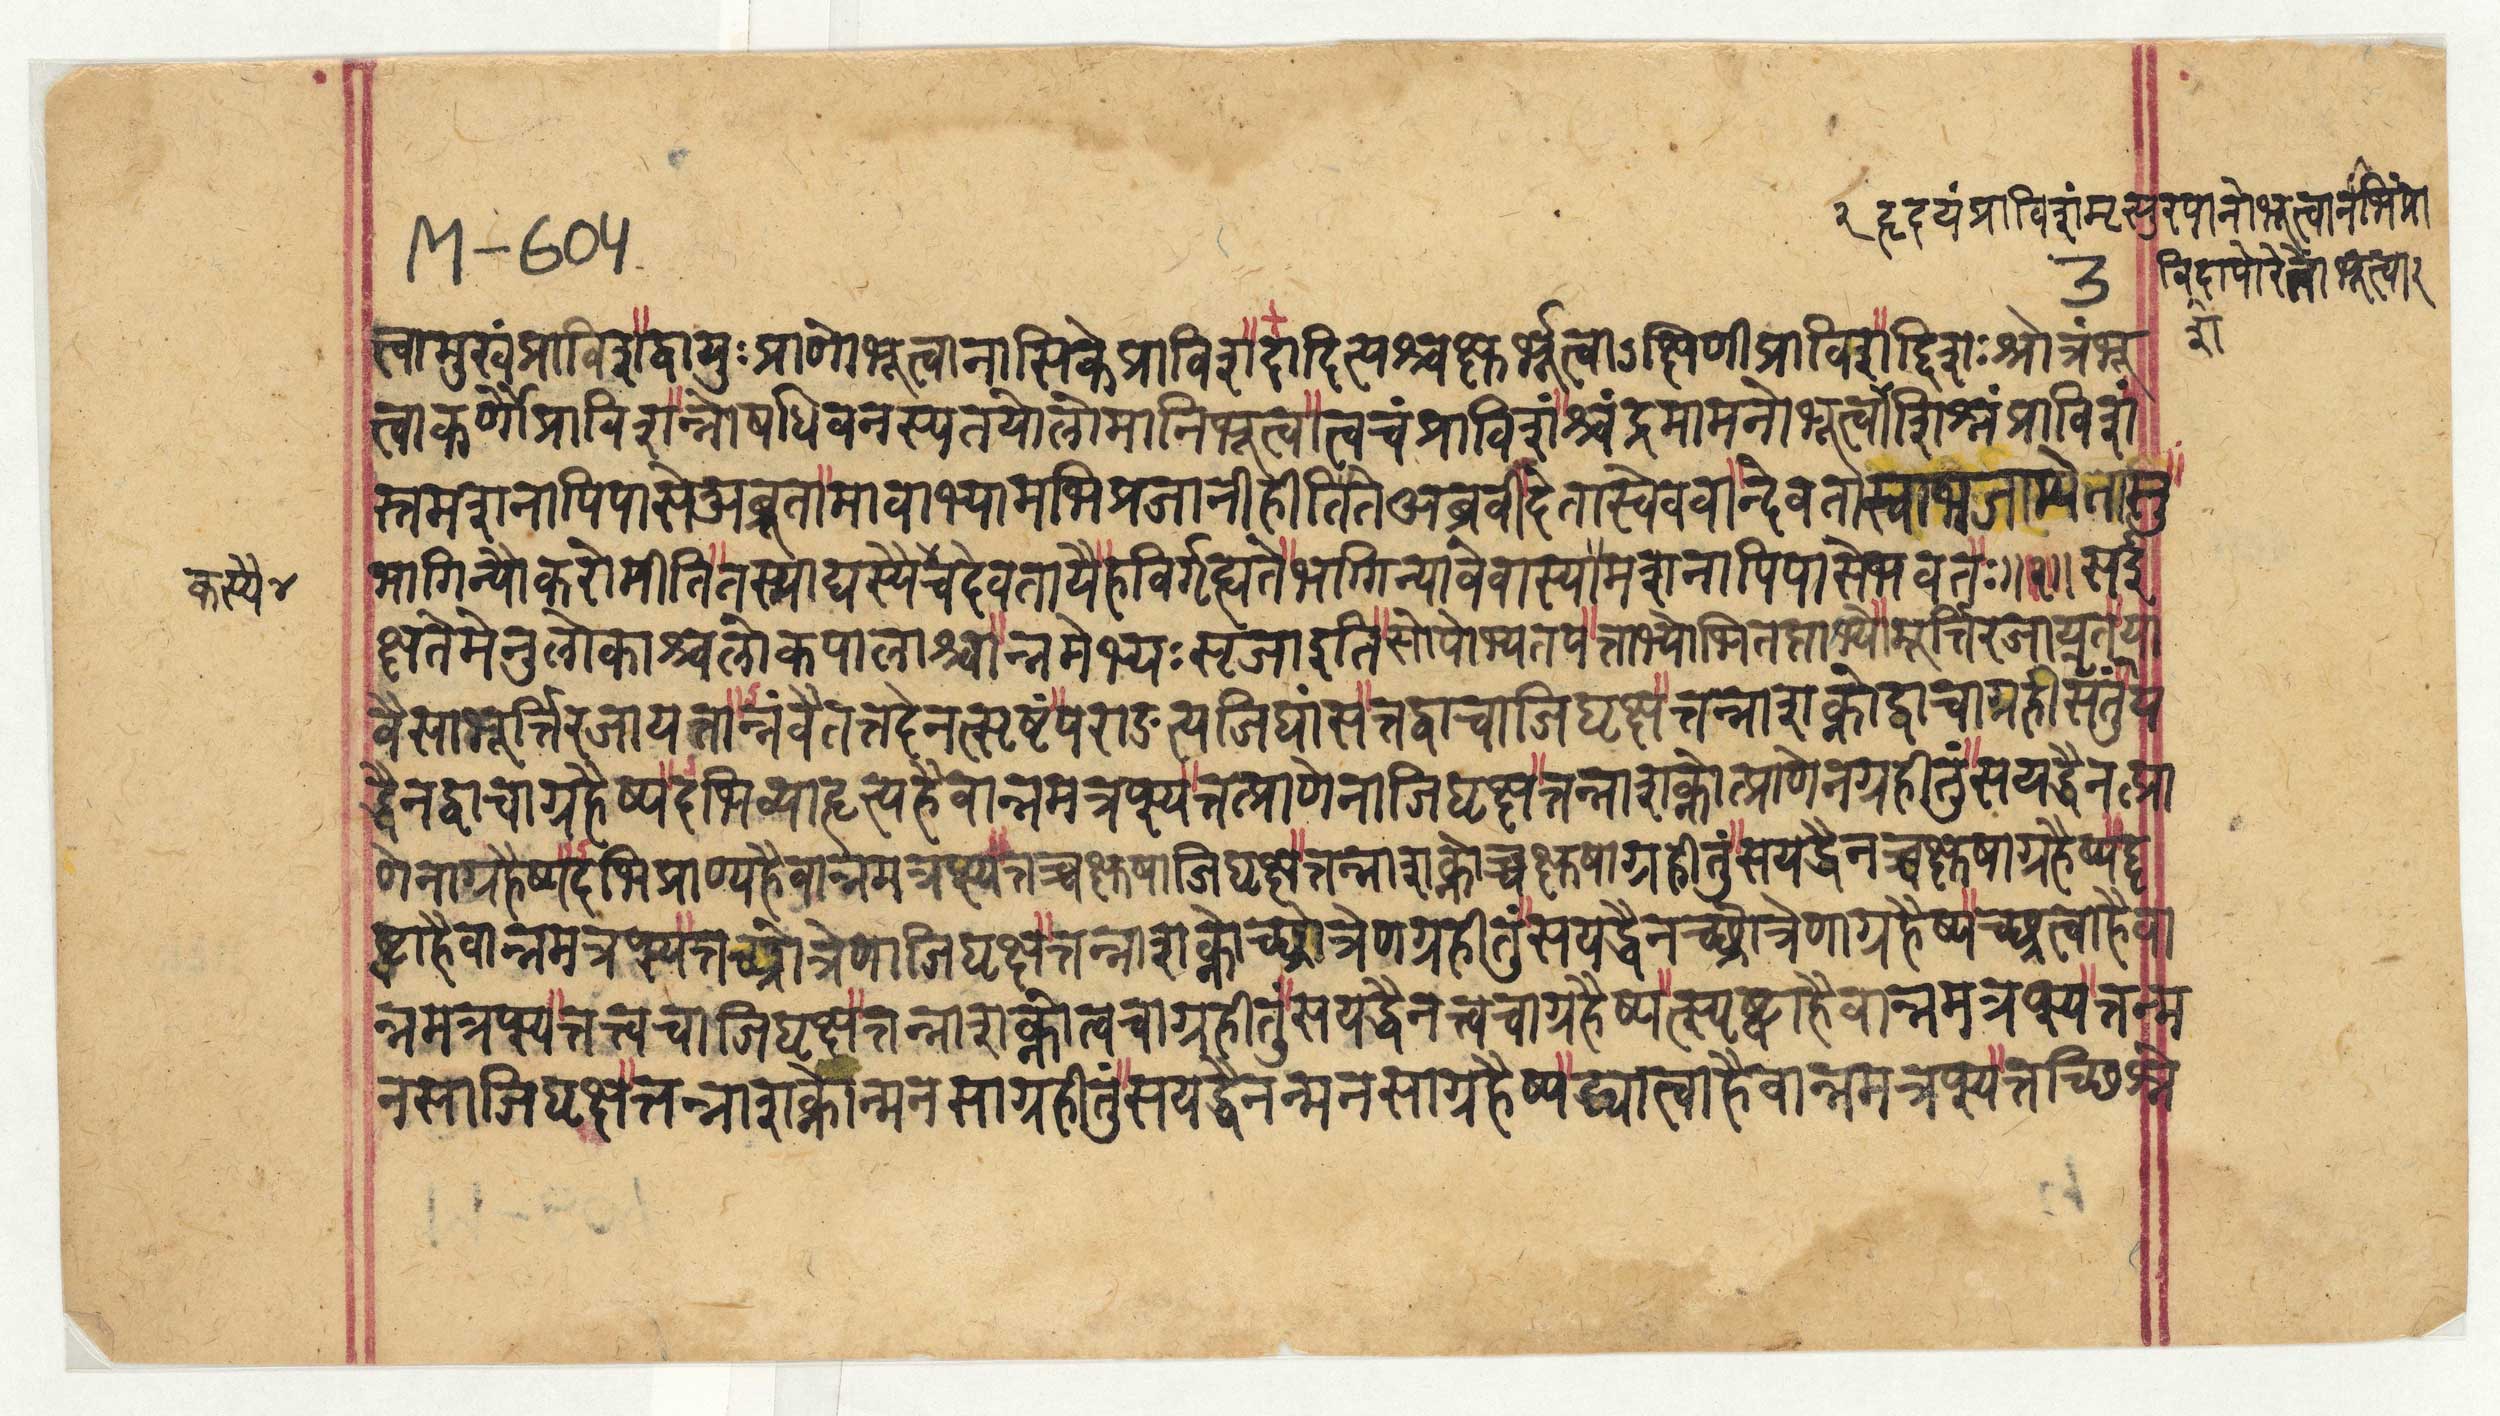 २ हृदयंप्राविशंमृत्युरपानोभूत्वानाभिंप्रा
M-604
3
विशदापोरेतोभूत्वा २
शं
त्वामुखंप्राविशद्वायुःप्राणोभूत्वानासिकेप्राविशदादित्यश्चक्षुर्भूत्वाऽक्षिणीप्राविशद्दिशःश्रोत्रंभू
त्वाकर्णौप्राविशन्नोषधिवनस्पतयोलोमानिभूत्वात्वचंप्राविशंश्चंद्रमामनोभूत्वाशिश्नंप्राविशं
स्तमशनापिपासेअब्रूतामावाभ्यामभिप्रजानीहीतितेअब्रवीदेतास्वेववान्देवतास्वाभजाम्येतासु
कस्यै ४
भागिन्यौकरोमीतितस्माद्यस्यैचदेवतायैहविर्गृह्यतेभागिन्यावेवास्यामशनापिपासेभवतः॥२॥सई
क्षतेमेनुलोकाश्चलोकपालाश्चान्नमेभ्यःसृजाइतिसोपोभ्यतपत्ताभ्योभितप्ताभ्योमूर्त्तिरजायतया
वैसामूर्त्तिरजायतान्नंवैतत्तदेनत्सृष्टंपराङत्यजिघांसत्तद्वाचाजिघृक्षत्तन्नाशक्नोद्वाचाग्रहीतुंसय
द्धैनद्वाचाग्रहैष्यदभिव्याहृत्यहैवान्नमत्रप्स्यत्तत्प्राणेनाजिघृक्षत्तन्नाशक्नोत्प्राणेनग्रहीतुंसयद्धैनत्प्रा
णेनाग्रहैष्यदभिप्राण्यहैवान्नमत्रप्स्यत्तच्चक्षुषाजिघृक्षत्तन्नाशक्नोच्चक्षुषाग्रहीतुंसयद्धैनच्चक्षुषाग्रहैष्यद्दृ
ष्ट्वाहैवान्नमत्रप्स्यत्तच्छ्रोत्रेणाजिघृक्षत्तन्नाशक्नोच्छ्रोत्रेणग्रहीतुंसयद्धैनच्छ्रोत्रेणाग्रहैष्यच्छ्रुत्वाहैवा
न्नमत्रप्स्यत्तत्त्वचाजिघृक्षत्तन्नाशक्नोत्वचाग्रहीतुंसयद्धैनत्त्वचाग्रहैष्यत्स्पृष्ट्वाहैवान्नमत्रप्स्यत्तन्म
नसाजिघृक्षत्तन्नाशक्नोन्मनसाग्रहीतुंसयद्धैनन्मनसाग्रहैष्यद्ध्यात्वाहैवान्नमत्रप्स्यत्तच्छिश्ने